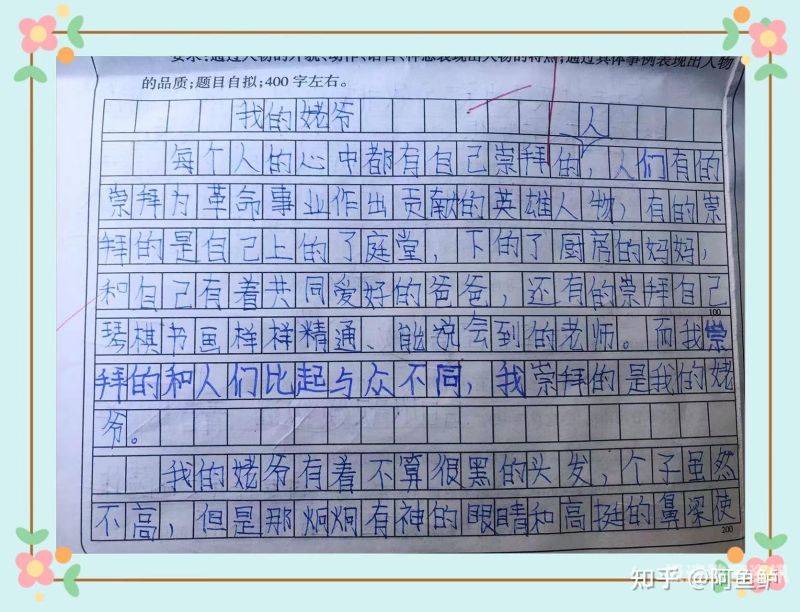 要求:通过人物的外貌、动作、语言、神态表现出人物的特点;通过具体事例表现出人物
的品质;题目自拟;400字左右。
我的姥爷
人
每个人的心中都有自己崇拜的,人们有的
崇拜为革命事业作出贡献的英雄人物,有的崇
拜的是自己上的了庭堂,下的了厨房的妈妈,
和自己有着共同爱好的爸爸,还有的崇拜自己
100
琴棋书画样样精通、能说会到的老师。而我崇
拜的和人们比起与众不同,我崇拜的是我的姥
爷。
我的姥爷有着不算很黑的头发,个子虽然
不高,但是那炯炯有神的眼睛和高挺的鼻梁使
200
知乎 @阿鱼鲈